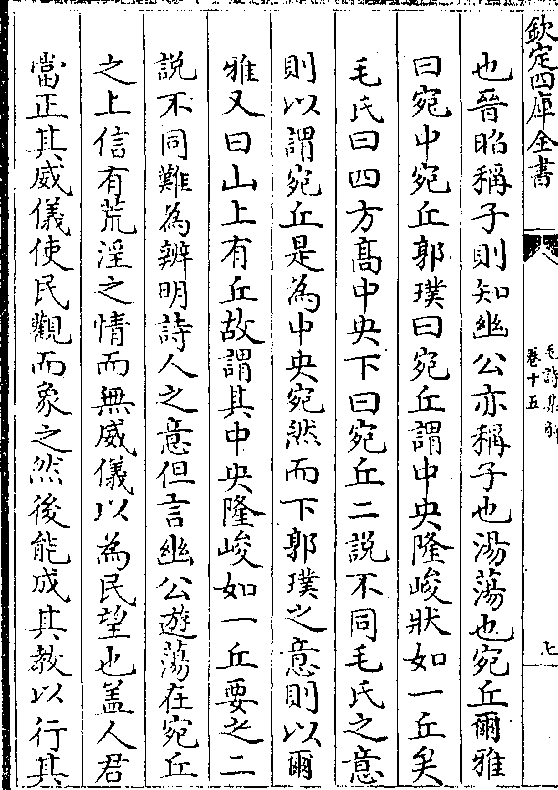 欽定四庫全書
毛詩集解
卷十五
七
也晉昭稱子則知幽公亦稱子也湯蕩也宛丘爾雅
曰宛中宛丘郭璞曰宛丘謂中央隆峻狀如一丘矣
毛氏曰四方髙中央下曰宛丘二説不同毛氏之意
則以謂宛丘是為中央宛然而下郭璞之意則以爾
雅又曰山上有丘故謂其中央隆峻如一丘要之二
説不同難為辨明詩人之意但言幽公遊蕩在宛丘
之上信有荒淫之情而無威儀以為民望也盖人君
當正其威儀使民觀而象之然後能成其教以行其